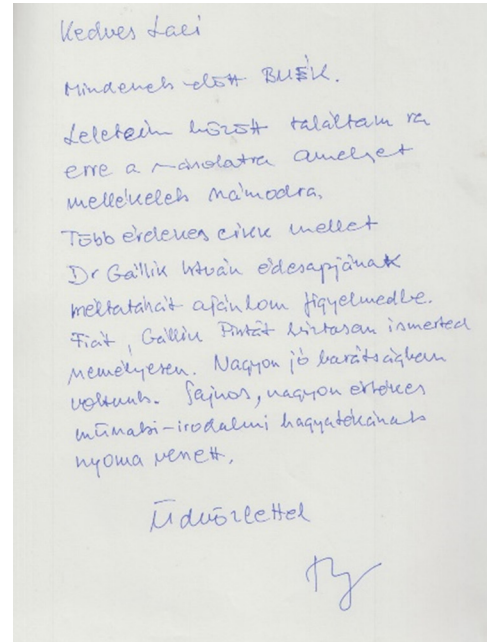 Kedves Laci
Mindenek előtt BUÉK.
Leleteim között találtam rá
erre a másolatra amelyet
mellékelek számodra.
Több érdekes cikk mellet
Dr Gállik István édesapjának
méltatását ajánlom figyelmedbe.
Fiát, Gállik Pistát biztosan ismerted
személyesen. Nagyon jó barátságban
voltunk. Sajnos, nagyon értékes
műszaki-irodalmi hagyatékának
nyoma veszett.
Üdvözlettel